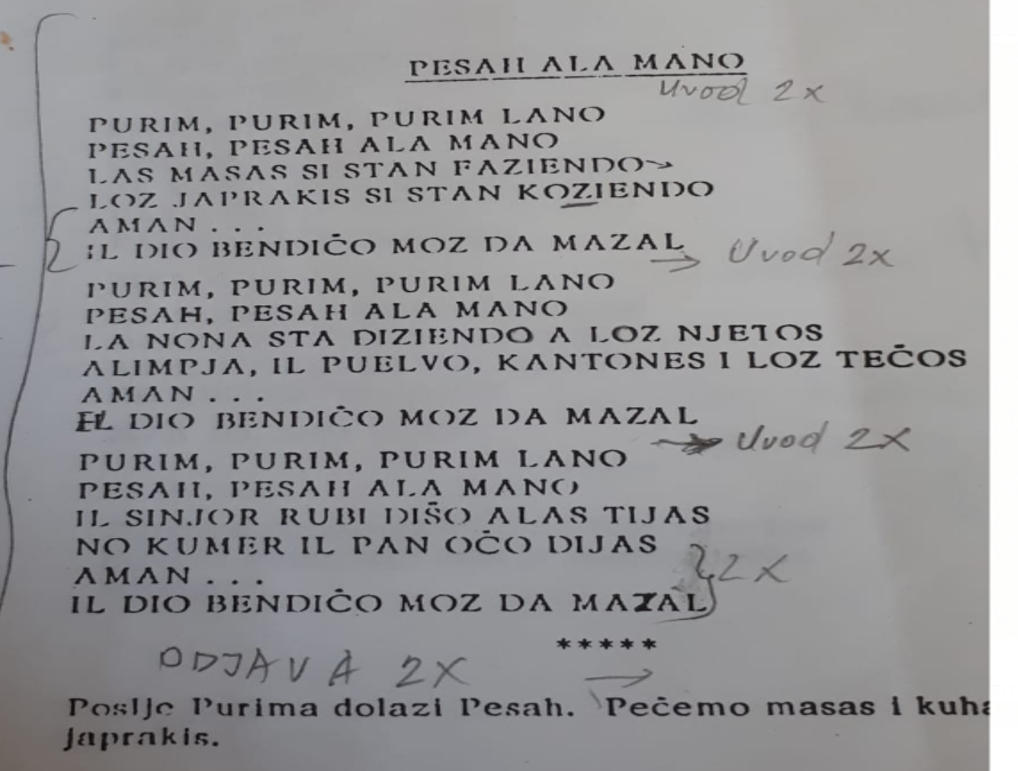 PESAH ALA MANO
Uvod 2x
PURIM, PURIM, PURIM LANO
PESAH, PESAH ALA MANO
LAS MASAS SI STAN FAZIENDO
LOZ JAPRAKIS SI STAN KOZIENDO
AMAN . . .
IL DIO BENDIČO MOZ DA MAZAL
Uvod 2x
PURIM, PURIM, PURIM LANO
PESAH, PESAH ALA MANO
LA NONA STA DIZIENDO A LOZ NJETOS
ALIMPJA, IL PUELVO, KANTONES I LOZ TEČOS
AMAN . . .
EL DIO BENDIČO MOZ DA MAZAL
Uvod 2x
PURIM, PURIM, PURIM LANO
PESAH, PESAH ALA MANO
IL SINJOR RUBI DIŠO ALAS TIJAS
NO KUMER IL PAN OČO DIJAS
AMAN . . .
2x
IL DIO BENDIČO MOZ DA MAZAL
*****
ODJAVA 2X
Poslje Purima dolazi Pesah. Pečemo masas i kuha
japrakis.